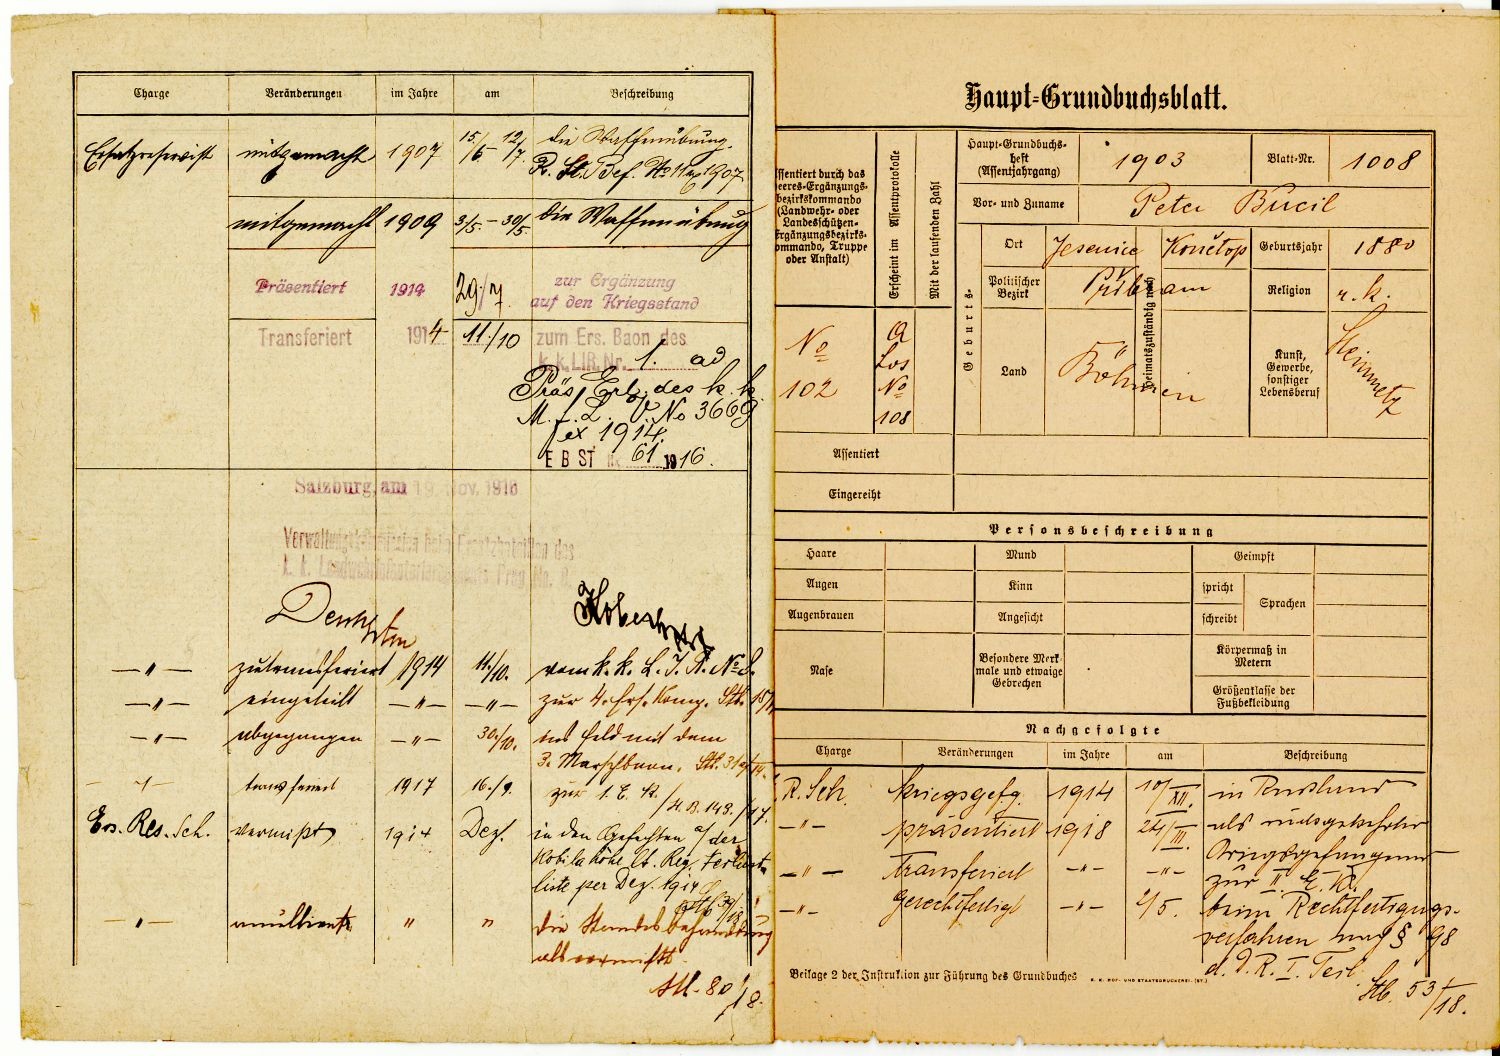 Charge Veränderungen im Jahre am Beschreibung
Ersatzreservist mitgemacht 1907 15/6 12/7 die Waffenübung.
1907
mitgemacht 1909 3/5 – 30/5 die Waffenübung
Präsentiert 1914 29./7. zur Ergänzung
auf den Kriegsstand
Transferiert 1914 11./10 zum Ers. Baon des
k.k. LIR. Nr. 1. ad
Präs Erl. des k. k.
M. f. L. V. No 3669
ex 1914.
E B ST 61 1916.
Salzburg, am 19. Nov. 1916
Verwaltungskommission beim Ersatzbataillon des
k. k. Landwehrinfanterieregiments Prag No. 8.
— " — zutransferiert 1914 11./10. vom k. k. L. I. R. No 8.
— " — eingeteilt — " — — " — zur 4. Ers. Komp. Stb.
— " — abgegangen — " — 30./10. ins Feld mit dem
3. Marschbaon.
transferiert 1917 16./9. zur 1. E. K.
Ers. Res. Sch. vermißt 1914 Dez. in den Gefechten a/ der
Kobilahöhe lt. Reg. Verlust-
liste per Dez. 1914
— " — annulliert " " die Standesbehandlung
als vermißt.
Stb. 80/18.
Haupt-Grundbuchsblatt.
Assentiert durch das
Heeres-Ergänzungs-
bezirkskommando
(Landwehr- oder
Landesschützen-
Ergänzungsbezirks-
kommando, Truppe
oder Anstalt)
Erscheint im Assentprotokolle
Mit der laufenden Zahl
No
102
a
Los
No
108
Haupt-Grundbuchs-
heft
(Assentjahrgang)
1903 Blatt-Nr. 1008
Vor- und Zuname Peter Bučil
Geburts-
Heimatszuständig nach
Ort Jesenice Konětop Geburtsjahr 1880
Politischer
Bezirk
Přibram Religion r. k.
Land Böhmen
Kunst,
Gewerbe,
sonstiger
Lebensberuf
Steinmetz
Assentiert
Eingereiht
Personsbeschreibung
Haare Mund Geimpft
Augen Kinn spricht Sprachen
Augenbrauen Angesicht schreibt
Nase
Besondere Merk-
male und etwaige
Gebrechen
Körpermaß in
Metern
Größenklasse der
Fußbekleidung
Nachgefolgte
Charge Veränderungen im Jahre am Beschreibung
R. Sch. kriegsgefg. 1914 10/XII. in Russland
— " — präsentiert 1918 24/III. als rückgekehrter
Kriegsgefangener
— " — Transferiert — " — — " — zur II. E. K.
— " — Gerechtfertigt — " — 2/5. beim Rechtfertigungs-
verfahren nach § 98
d. D. R. I. Teil.
Stb. 53/18.
Beilage 2 der Instruktion zur Führung des Grundbuches K. K. HOF- UND STAATSDRUCKEREI. (ST.)